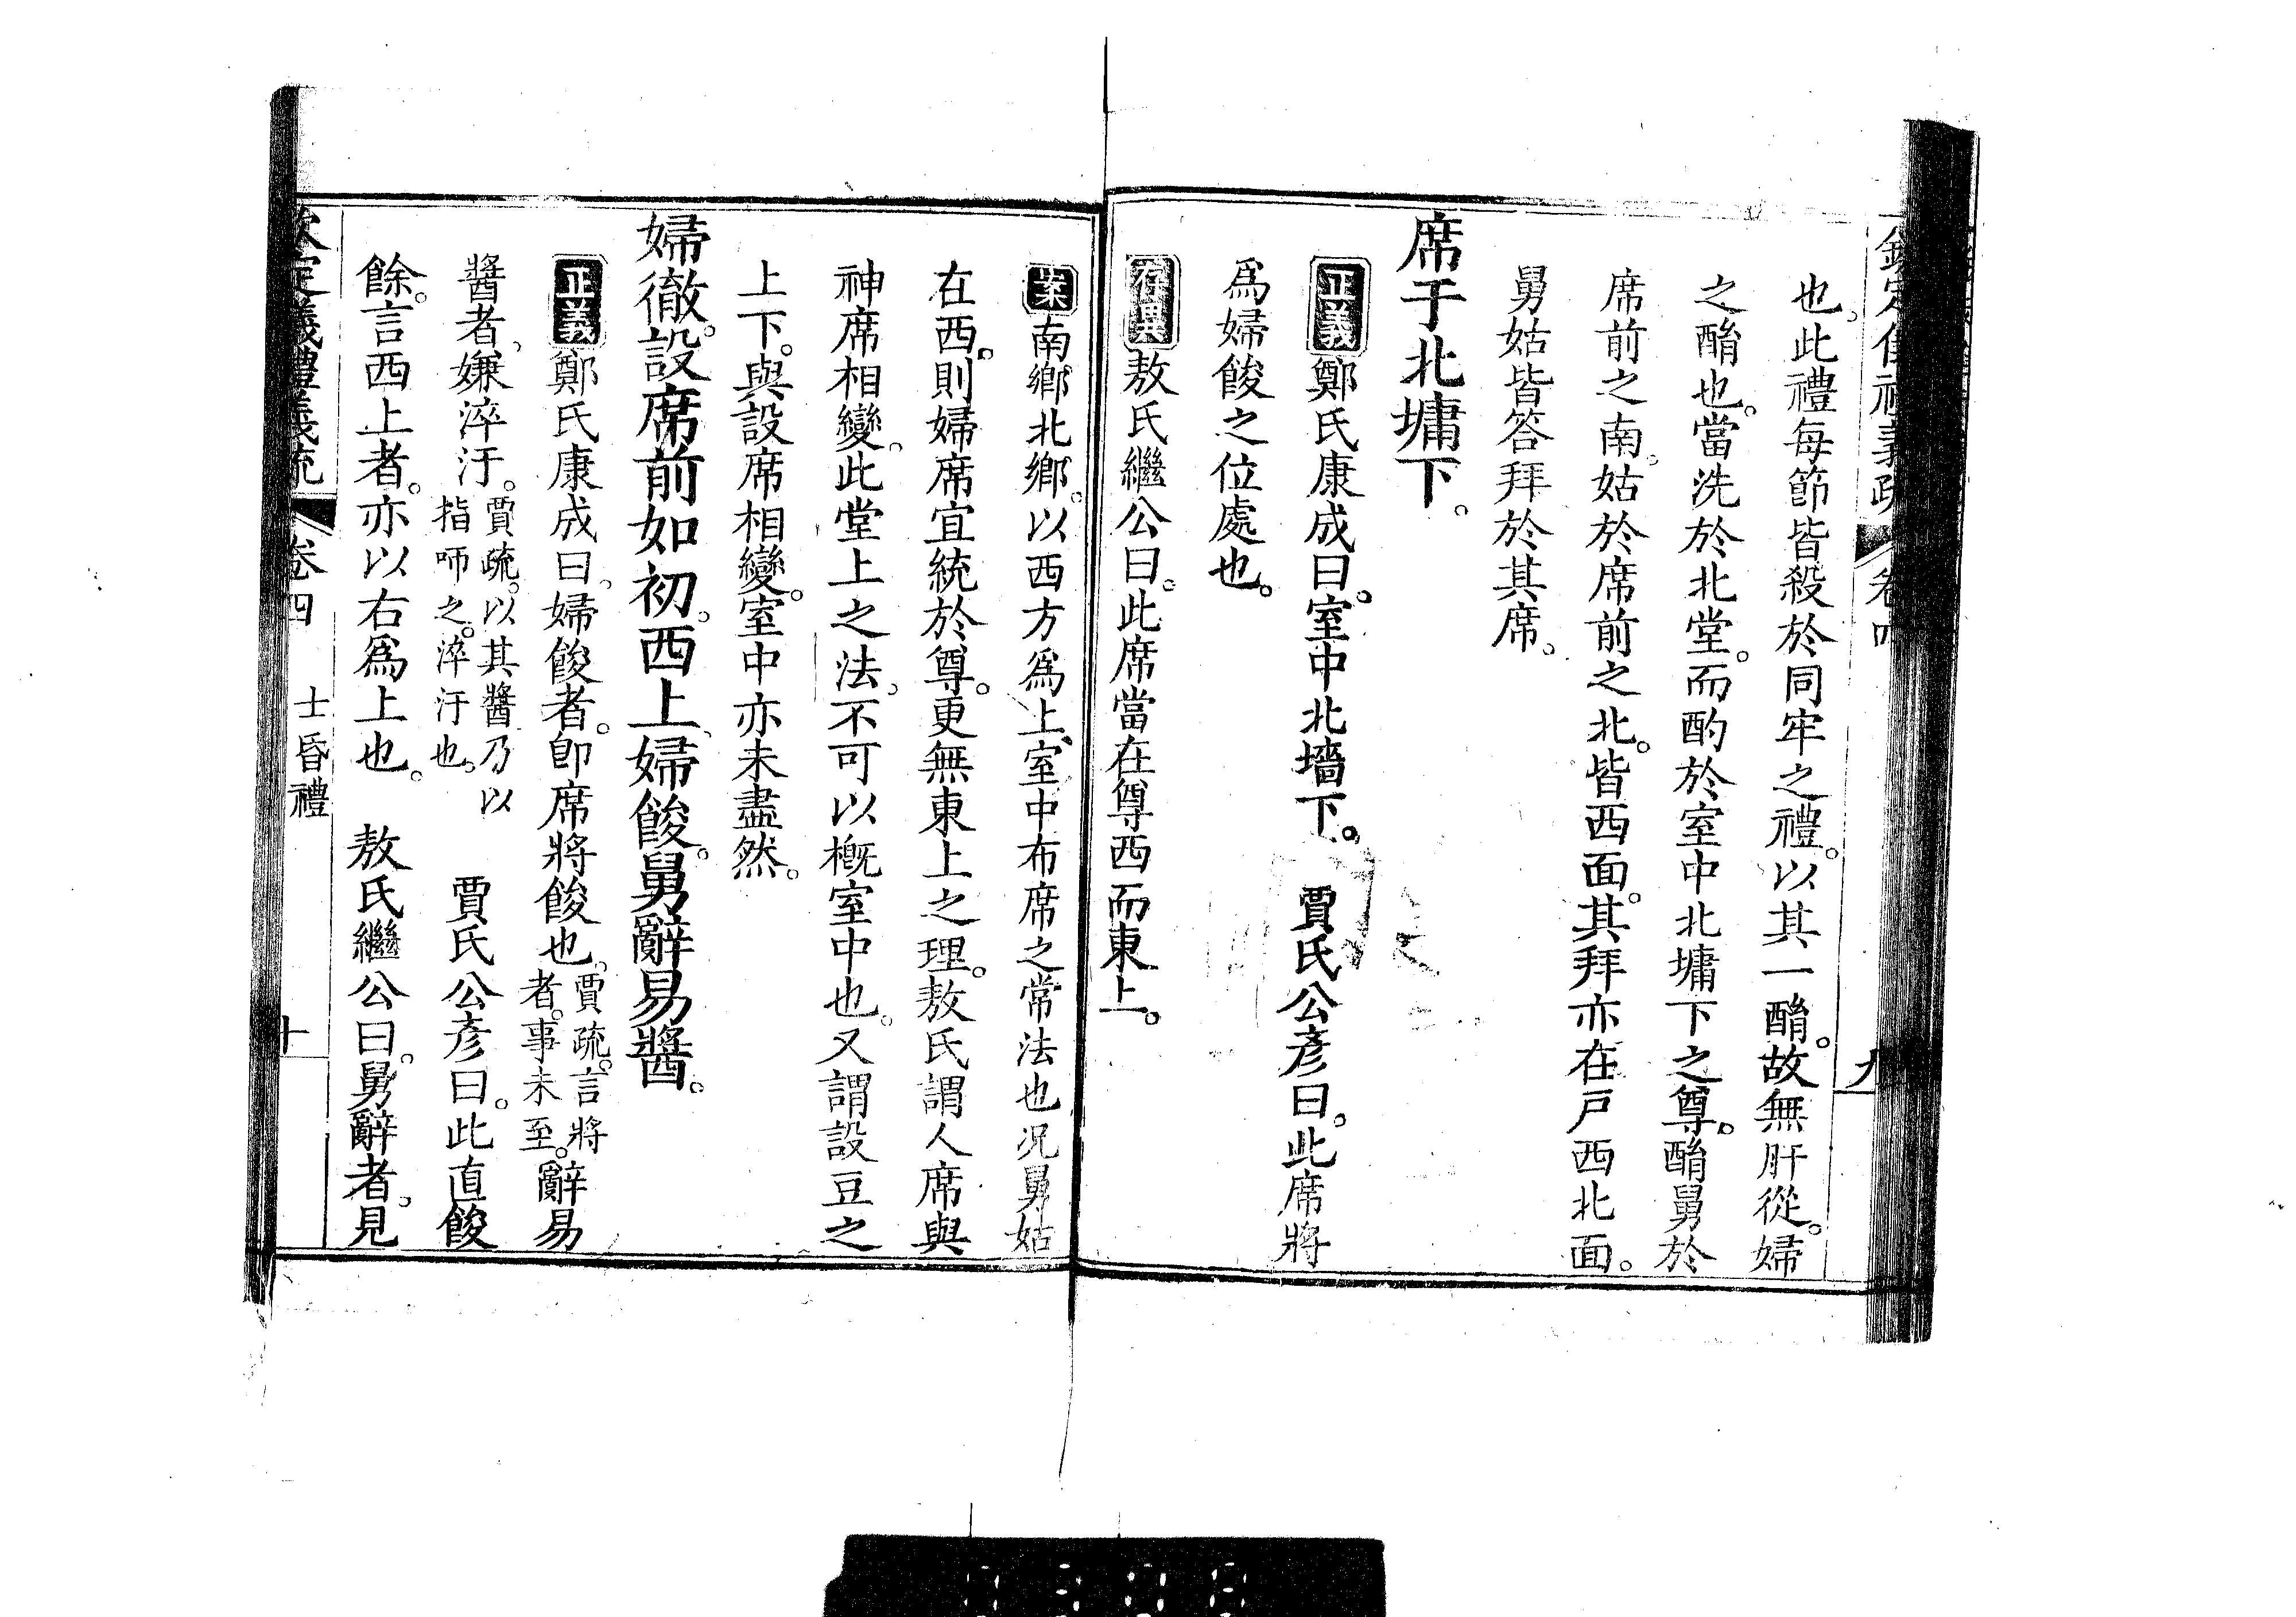 也。此禮每節皆殺於同牢之禮。以其一酳。故無肝從。婦
之酳也。當洗於北堂。而酌於室中北墉下之尊。酳舅於
席前之南。姑於席前之北。皆西面。其拜亦在戸西北面。
舅姑皆答拜於其席。
席于北墉下。
正義鄭氏康成曰。室中北墻下。 賈氏公彥曰。此席將
爲婦餕之位處也。
存異敖氏繼公曰。此席當在尊西而東上。
案南鄉北鄉。以西方爲上、室中布席之常法也况舅姑
在西。則婦席宜統於尊。更無東上之理。敖氏謂人席與
神席相變。此堂上之法。不可以概室中也。又謂設豆之
上下。與設席相變。室中亦未盡然。
婦徹。設席前如初。西上、婦餕。舅辭易醬。
正義鄭氏康成曰、婦餕者。卽席將餕也。賈疏。言將者。事未至。辭易
醬者、嫌淬汙。賈疏。以其醬乃以指咂之。淬汙也。 賈氏公彥曰。此直餕
餘。言西上者。亦以右爲上也。 敖氏繼公曰。舅辭者。見
欽定儀禮義疏 卷四 士昏禮 十